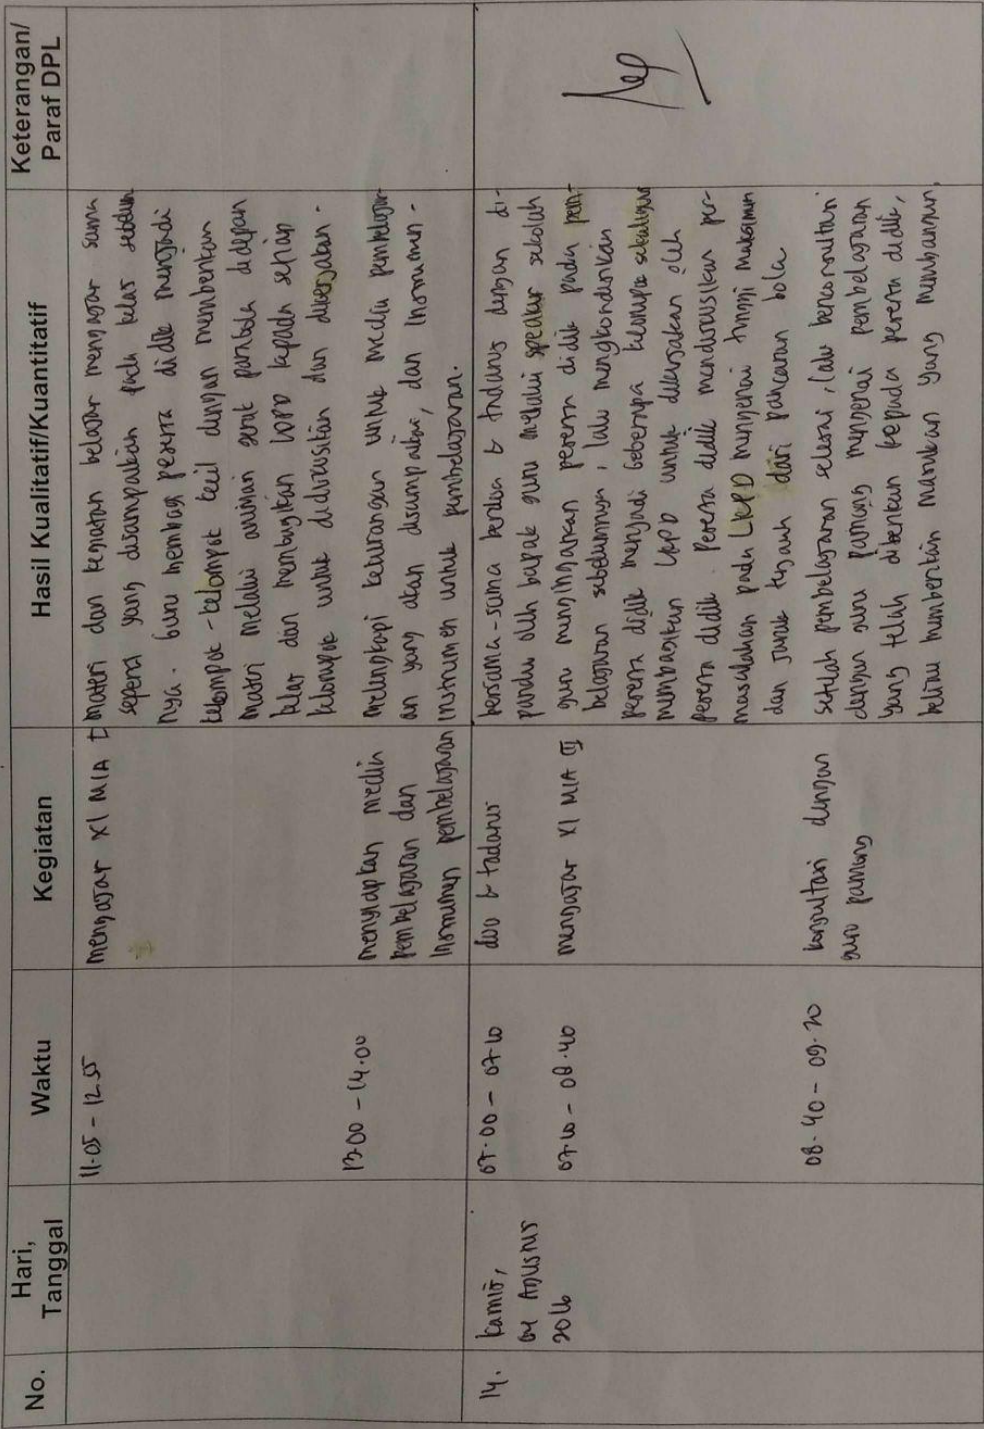 No.
Hari,
Tanggal
Waktu
Kegiatan
Hasil Kualitatif/Kuantitatif
Keterangan/
Paraf DPL
11.05 - 12.55
mengajar XI MIA I
materi dan kegiatan belajar mengajar sama
seperti yang disampaikan pada kelas sebelum
nya. Guru membagi peserta didik menjadi
kelompok - kelompok kecil dengan memberikan
materi melalui animasi gerak parabola didepan
kelas dan membagikan LKPD kepada setiap
kelompok untuk didiskusikan dan dikerjakan.
13.00 - 14.00
menyiapkan media
pembelajaran dan
Instrumen pembelajaran
melengkapi kekurangan untuk media pembelajar-
an yang akan disampaikan, dan Instrumen -
instrumen untuk pembelajaran.
14.
Kamis,
04 Agustus
2016
07.00 - 07.10
doa & tadarus
bersama-sama berdoa & tadarus dengan di-
pandu oleh bapak guru melalui speaker sekolah
07.10 - 08.40
mengajar XI MIA III
guru mengingatkan peserta didik pada pem-
belajaran sebelumnya, lalu mengkondisikan
peserta didik menjadi beberapa kelompok sekaligus
membagikan LKPD untuk dikerjakan oleh
peserta didik. Peserta didik mendiskusikan per-
masalahan pada LKPD mengenai tinggi maksimum
dan jarak terjauh dari pancaran bola
08.40 - 09.20
konsultasi dengan
guru pamong
setelah pembelajaran selesai, lalu berkonsultasi
dengan guru pamong mengenai pembelajaran
yang telah diberikan kepada peserta didik,
beliau memberikan masukan yang membangun,